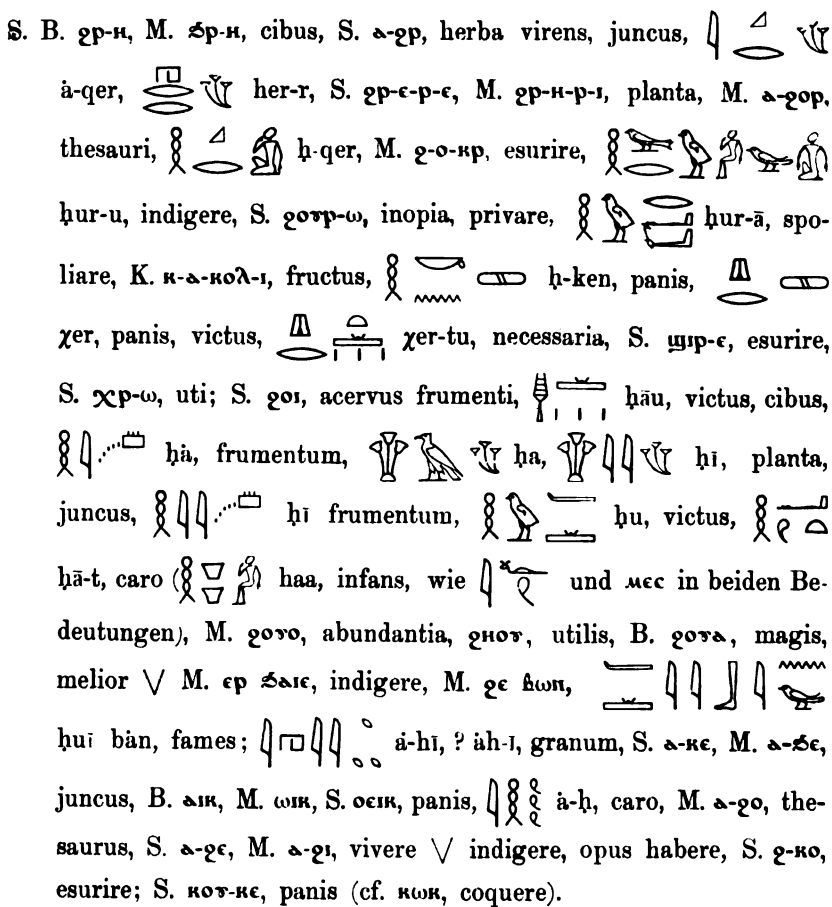 S. B. ϩⲣ-ⲏ, M. ϧⲣ-ⲏ, cibus, S. ⲁ-ϩⲣ, herba virens, juncus,
ȧ-qer, her-r, S. ϩⲣ-ⲉ-ⲣ-ⲉ, M. ϩⲣ-ⲏ-ⲣ-ⲓ, planta, M. ⲁ-ϩⲟⲣ,
thesauri, ḥ-qer, M. ϩ-ⲟ-ⲕⲣ, esurire,
ḥur-u, indigere, S. ϩⲟⲩⲣ-ⲱ, inopia, privare, ḥur-ā, spo-
liare, K. ⲕ-ⲁ-ⲕⲟⲗ-ⲓ, fructus, ḥ-ken, panis,
χer, panis, victus, χer-tu, necessaria, S. ϣⲓⲣ-ⲉ, esurire,
S. ⲭⲣ-ⲱ, uti; S. ϩⲟⲓ, acervus frumenti, ḥāu, victus, cibus,
ḥȧ, frumentum, ḥa, ḥī, planta,
juncus, ḥī frumentum, ḥu, victus,
ḥā-t, caro ( haa, infans, wie und ⲙⲉⲥ in beiden Be-
deutungen), M. ϩⲟⲩⲟ, abundantia, ϩⲏⲟⲩ, utilis, B. ϩⲟⲩⲁ, magis,
melior V M. ⲉⲣ ϧⲁⲓⲉ, indigere, M. ϩⲉ ⲃⲱⲛ,
ḥuī bȧn, fames; ȧ-hī, ? ȧh-ī, granum, S. ⲁ-ⲕⲉ, M. ⲁ-ϧⲉ,
juncus, B. ⲁⲓⲕ, M. ⲱⲓⲕ, S. ⲟⲉⲓⲕ, panis, ȧ-ḥ, caro, M. ⲁ-ϩⲟ, the-
saurus, S. ⲁ-ϩⲉ, M. ⲁ-ϩⲓ, vivere V indigere, opus habere, S. ϩ-ⲕⲟ,
esurire; S. ⲕⲟⲩ-ⲕⲉ, panis (cf. ⲕⲱⲕ, coquere).